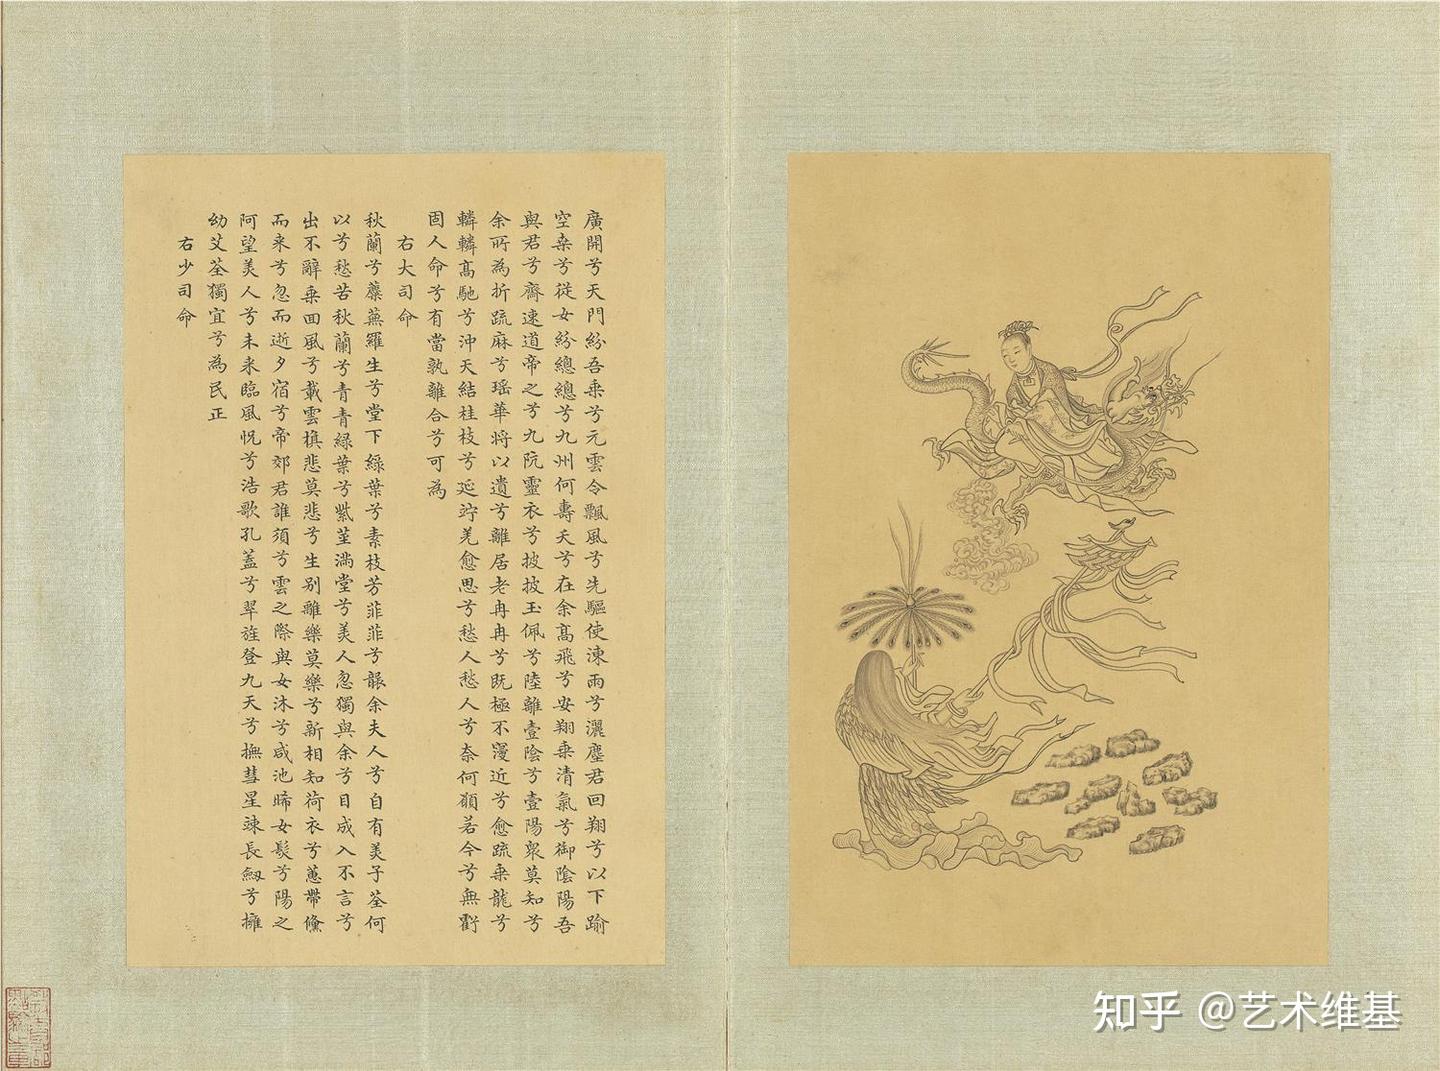 廣開兮天門紛吾乘兮元雲令飄風兮先驅使涷雨兮灑塵君回翔兮以下踰
空桒兮從女紛總總兮九州何壽夭兮在余高飛兮安翔乘清氣兮御陰陽吾
與君兮齋速道帝之兮九阬靈衣兮披披玉佩兮陸離壹陰兮壹陽眾莫知兮
余所為折疏麻兮瑤華將以遺兮離居老冉冉兮既極不寖近兮愈疏乘龍兮
轔轔高馳兮沖天結桂枝兮延竚羌愈思兮愁人愁人兮奈何願若今兮無虧
固人命兮有當孰離合兮可為
右大司命
秋蘭兮蘪蕪羅生兮堂下綠葉兮素枝芳菲菲兮襲余夫人兮自有美子荃何
以兮愁苦秋蘭兮青青綠葉兮紫莖滿堂兮美人忽獨與余兮目成入不言兮
出不辭乘回風兮載雲旗悲莫悲兮生別離樂莫樂兮新相知荷衣兮蕙帶儵
而來兮忽而逝夕宿兮帝郊君誰須兮雲之際與女沐兮咸池晞女髮兮陽之
阿望美人兮未來臨風怳兮浩歌孔蓋兮翠旌登九天兮撫彗星竦長劒兮擁
幼艾荃獨宜兮為民正
右少司命
知乎 @艺术维基